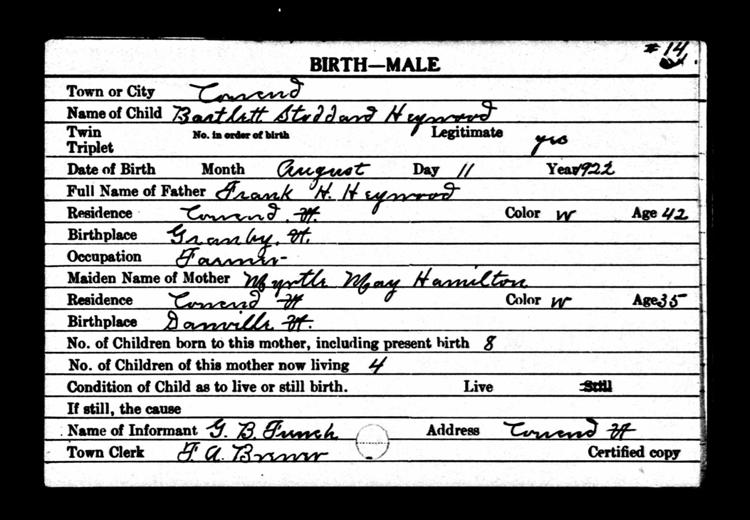 #14
BIRTH—MALE
Town or City Concord
Name of Child Bartlett Stoddard Heywood
Twin No. in order of birth Legitimate yes
Triplet
Date of Birth Month August Day 11 Year 1922
Full Name of Father Frank H. Heywood
Residence Concord Vt. Color W Age 42
Birthplace Granby, Vt.
Occupation Farmer
Maiden Name of Mother Myrtle May Hamilton
Residence Concord Vt Color W Age 35
Birthplace Danville Vt.
No. of Children born to this mother, including present birth 8
No. of Children of this mother now living 4
Condition of Child as to live or still birth. Live Still
If still, the cause
Name of Informant G. B. Address Concord Vt
Town Clerk F. A.
Certified copy